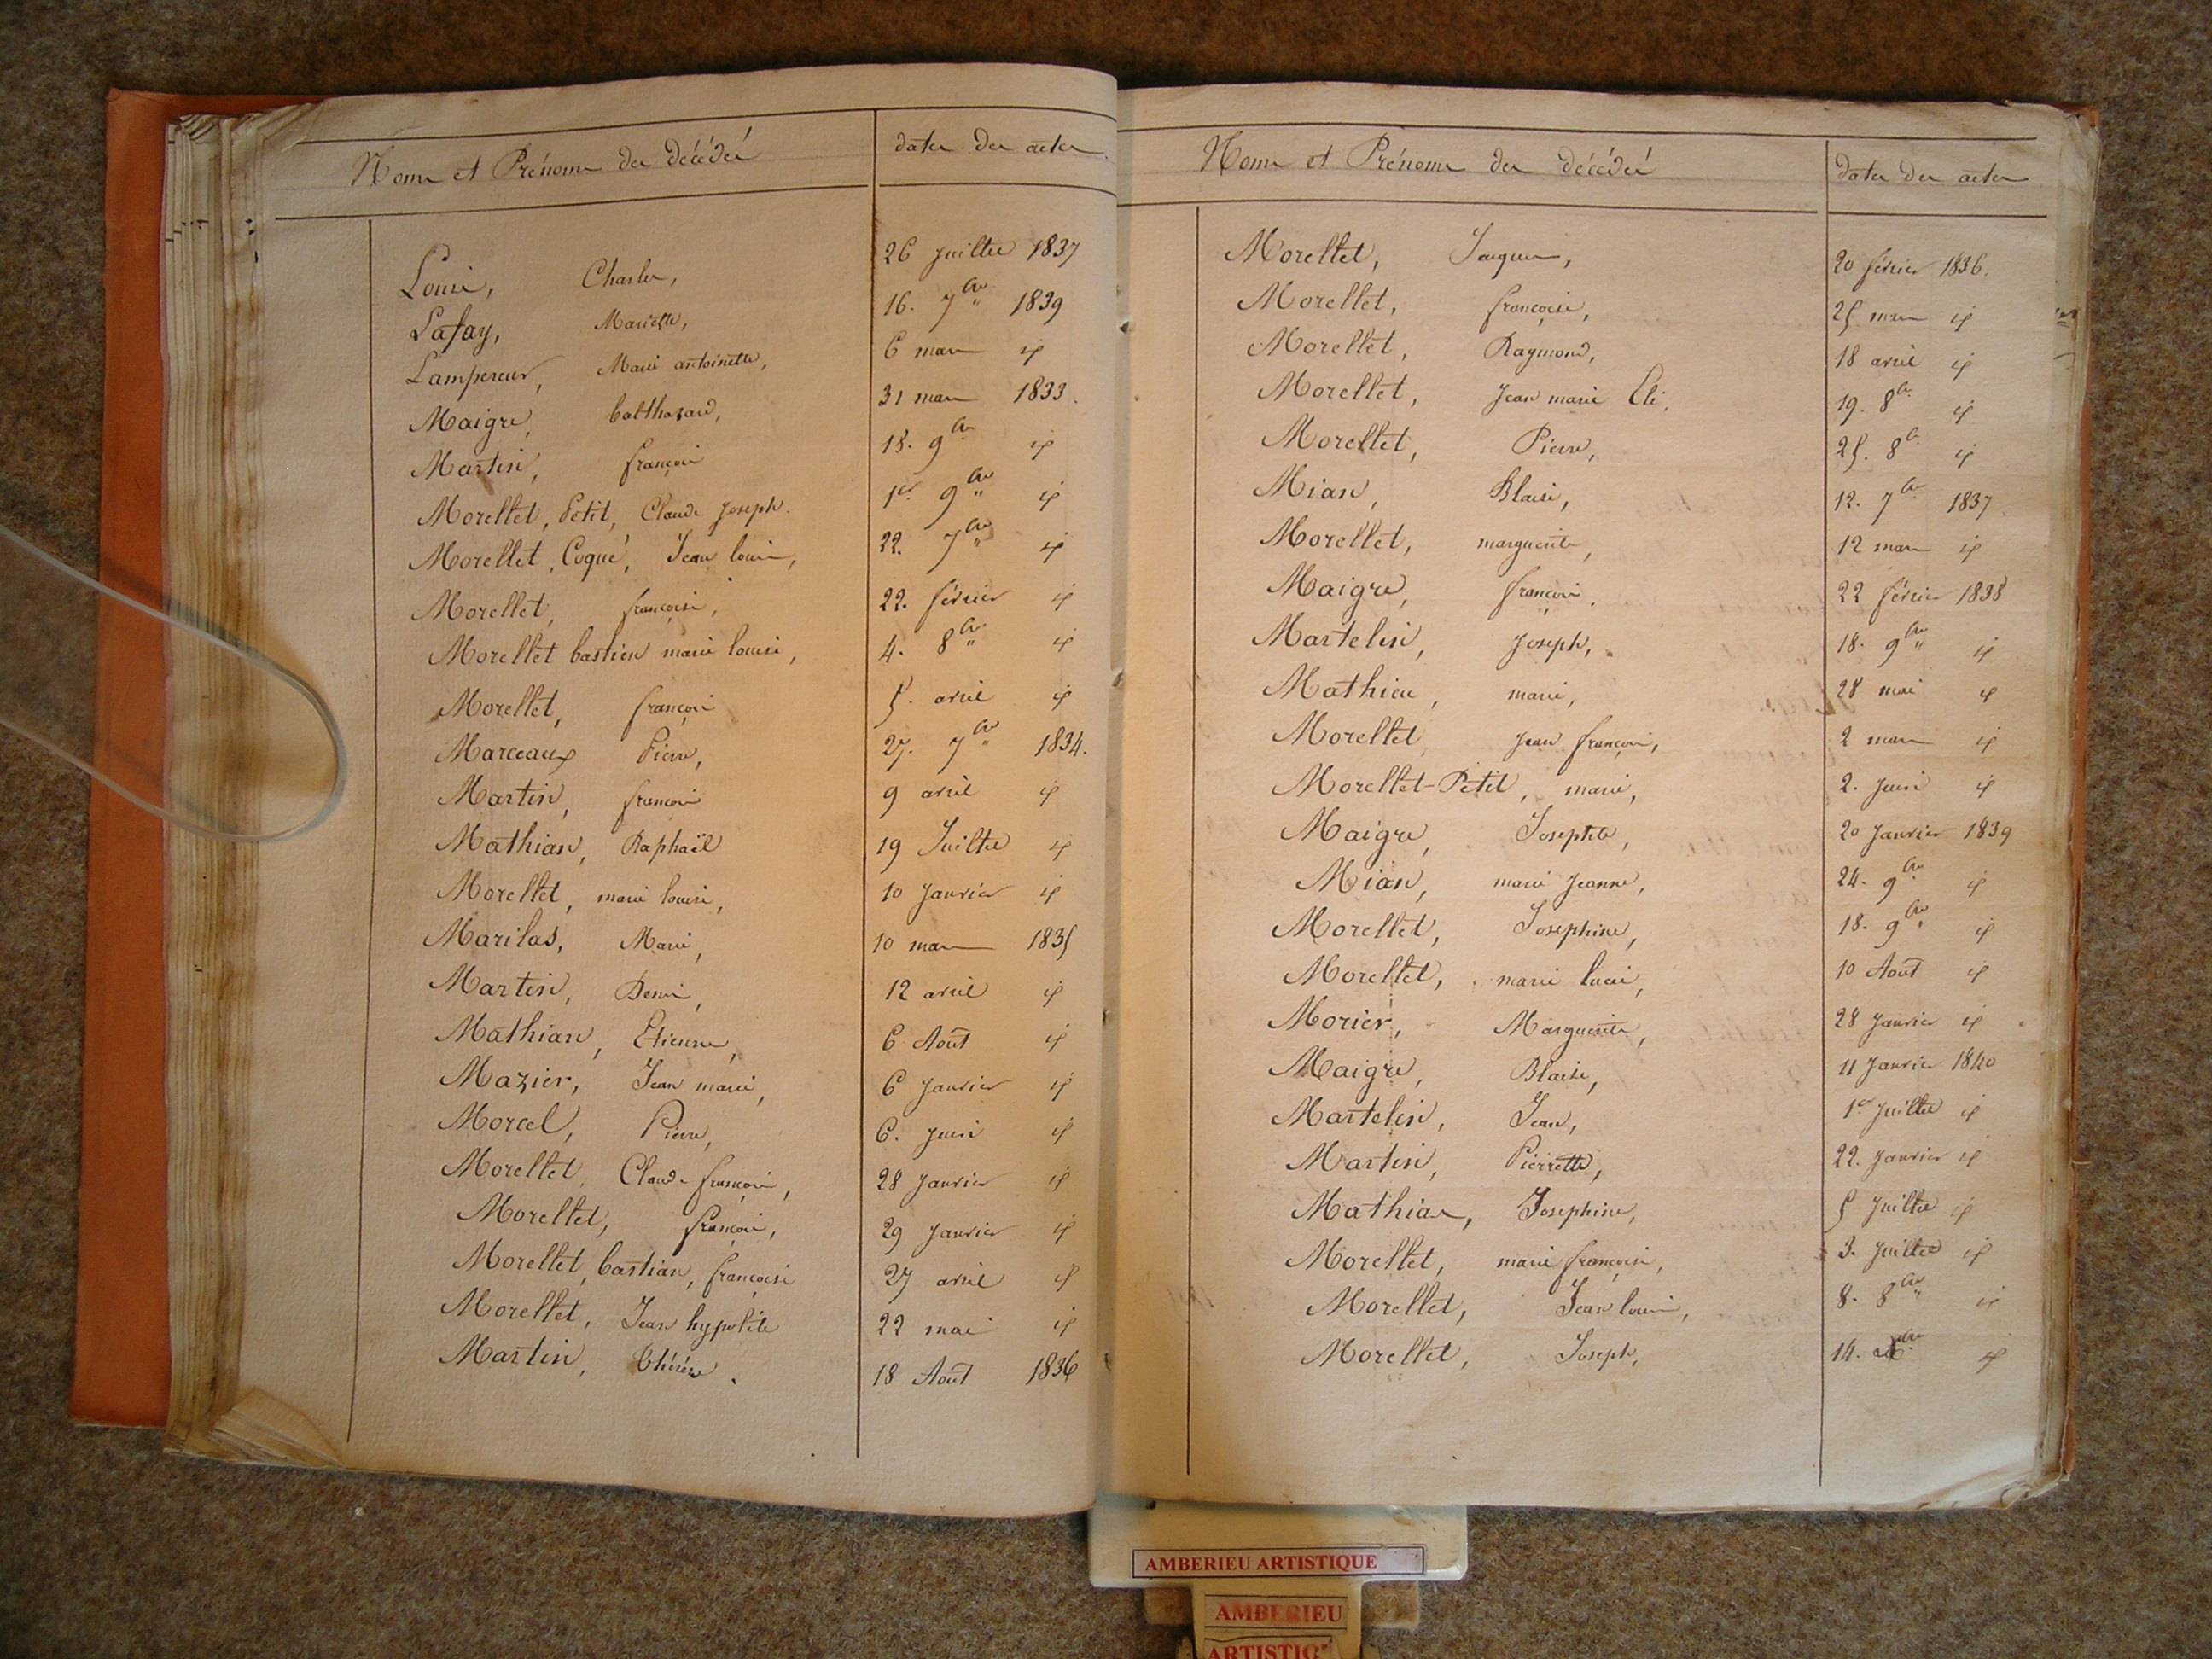 Noms et Prénoms des décédés dates des actes
Louis, Charles, 26 Juillet 1837
Lafay, Mariette, 16. 7bre 1839
Lampereur, Marie antoinette, 6 mars id
Maigre, balthazard, 31 mars 1833.
Martin, françois 18. 9bre id
Morellet, Petit, Claude Joseph. 1er 9bre id
Morellet, Coqué, Jean louis, 22. 7bre id
Morellet, françoise, 22. février id
Morellet bastien marie louise, 4. 8bre id
Morellet, françois 5. avril id
Marceaux Pierre, 27. 7bre 1834.
Martin, françois 9 avril id
Mathian, Raphaël 19 Juillet id
Morellet, marie louise, 10 Janvier id
Marilas, Marie, 10 mars 1835
Martin, Denis, 12 avril id
Mathian, Etienne, 6 Août id
Mazier, Jean marie, 6 Janvier id
Morel, Pierre, 6. Juin id
Morellet, Claude françois, 28 Janvier id
Morellet, françois, 29 Janvier id
Morellet, bastian, françoise 27 avril id
Morellet, Jean hypolite 22 mai id
Martin, thérèse. 18 Août 1836
Noms et Prénoms des décédés dates des actes
Morellet, Jacques, 20 février 1836.
Morellet, françoise, 25 mars id
Morellet, Raymond, 18 avril id
Morellet, Jean marie Eli. 19. 8bre id
Morellet, Pierre, 25. 8bre id
Mian, Blaise, 12. 7bre 1837.
Morellet, marguerite, 12 mars id
Maigre, françois. 22 février 1838
Martelin, Joseph, 18. 9bre id
Mathieu, marie, 28 mai id
Morellet Jean françois, 2 mars id
Morellet-Petit, marie, 2. Juin id
Maigre, Josephte, 20 Janvier 1839
Mian, marie Jeanne, 24. 9bre id
Morellet, Josephine, 18. 9bre id
Morellet, marie lucie, 10 Août id
Morier, Marguerite, 28 Janvier id
Maigre, Blaise, 11 Janvier 1840
Martelin, Jean, 1er Juillet id
Martin, Pierrette, 22. Janvier id
Mathian, Josephine, 5 Juillet id
Morellet, marie françoise, 3. Juillet id
Morellet, Jean louis, 8. 8bre id
Morellet, Joseph, 14. id
AMBERIEU ARTISTIQUE
AMBERIEU
ARTISTIQ